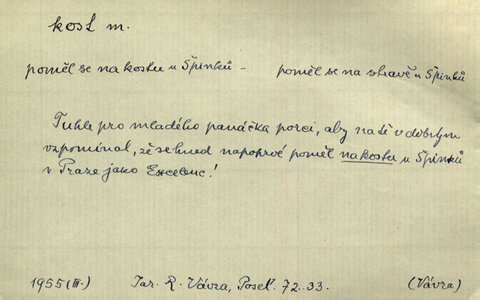 kost m.
poměl se na kostu u Špinků — poměl se na stravě u Špinků
Tuhle pro mladého panáčka porci, aby na ši v dobrým
vzpomínal, že se hned napoprvé poměl na kostu u Špinků
v Praze jako Excelenc!
1955 (III.) Jar. R. Vávra, Posel. 72.33. (Vávra)